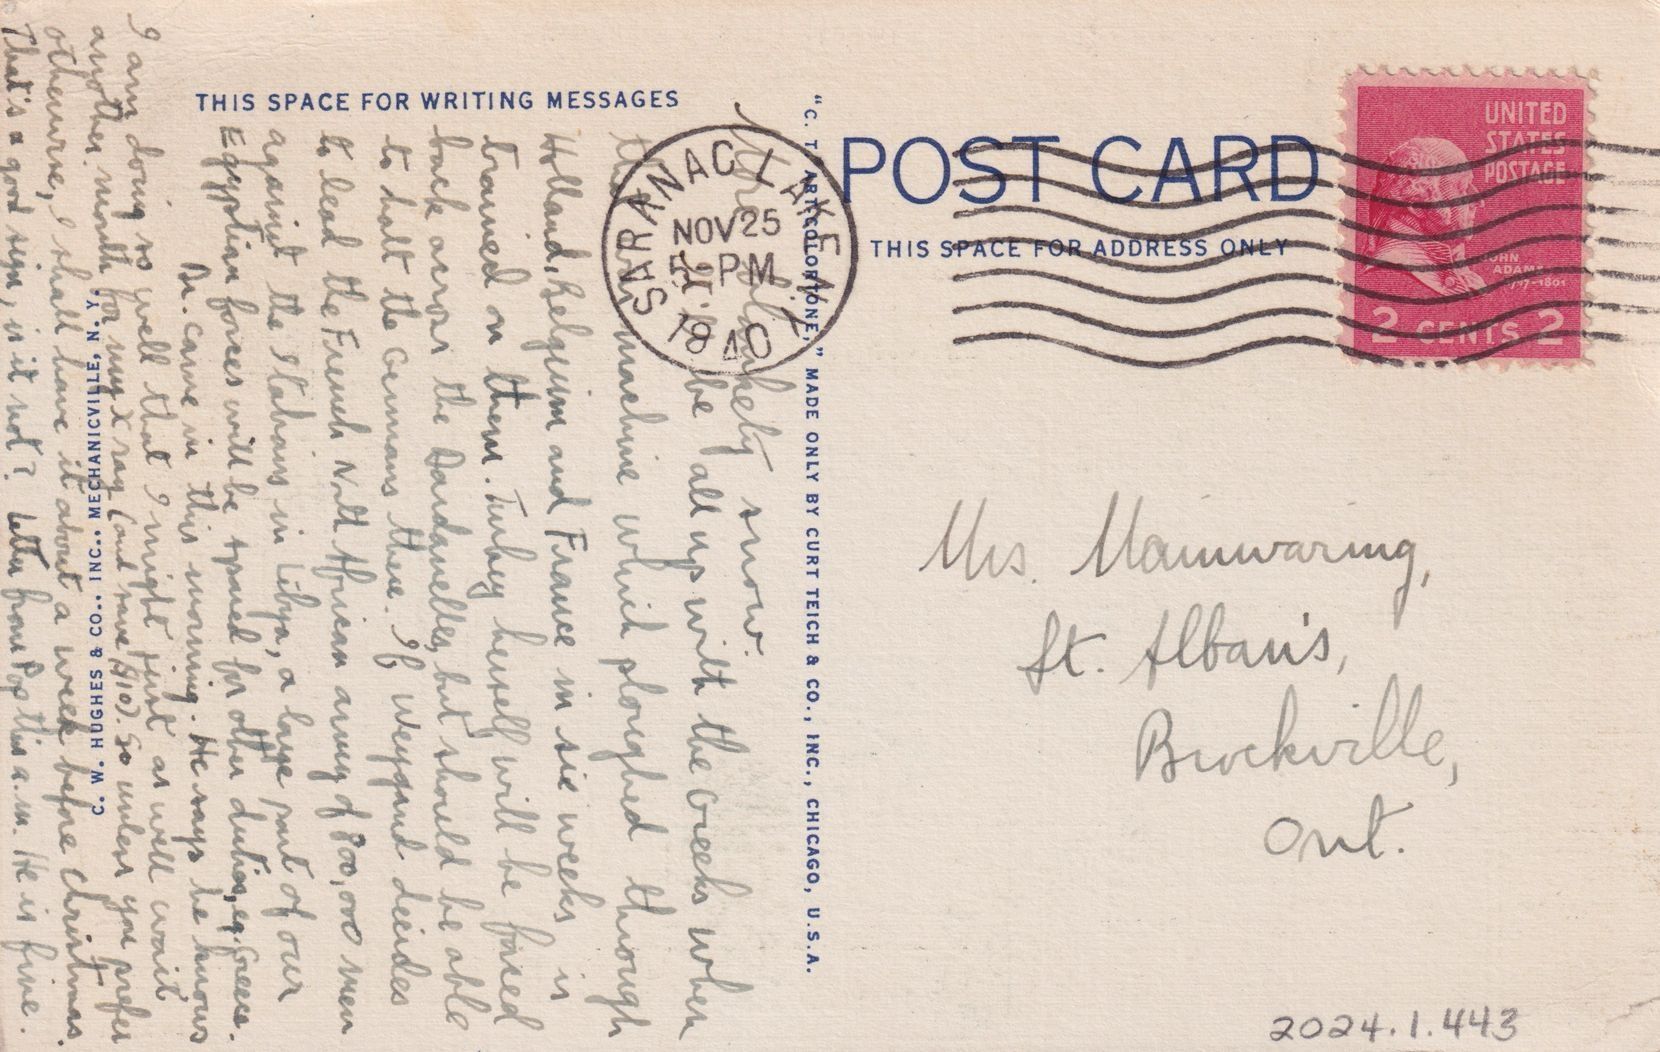 THIS SPACE FOR WRITING MESSAGES
POST CARD
THIS SPACE FOR ADDRESS ONLY
UNITED
STATES
POSTAGE
JOHN
ADAMS
1797-1801
2 CENTS 2
SARANAC LAKE N.Y.
NOV 25
5 - PM
1940
"C. T. ART-COLORTONE," MADE ONLY BY CURT TEICH & CO., INC., CHICAGO, U.S.A.
C. W. HUGHES & CO., INC., MECHANICVILLE, N. Y.
snow.
It'll be all up with the Greeks when
the machine which ploughed through
Holland, Belgium and France in six weeks is
trained on them. Turkey herself will be forced
back across the Dardanelles, but should be able
to halt the Germans there. If Weygand decides
to lead the French North African army of 800,000 men
against the Italians in Libya, a large part of our
Egyptian forces will be spared for other duties, eg. Greece.
Dr. came in this morning. He says he knows
I am doing so well that I might just as well wait
another month for my X ray (and save $10). So unless you prefer
otherwise, I shall have it about a week before Christmas.
That's a good sign, is it not? Letter from Pop this a.m. He is fine.
Mrs. Mainwaring,
St. Alban's,
Brockville,
Ont.
2024.1.443